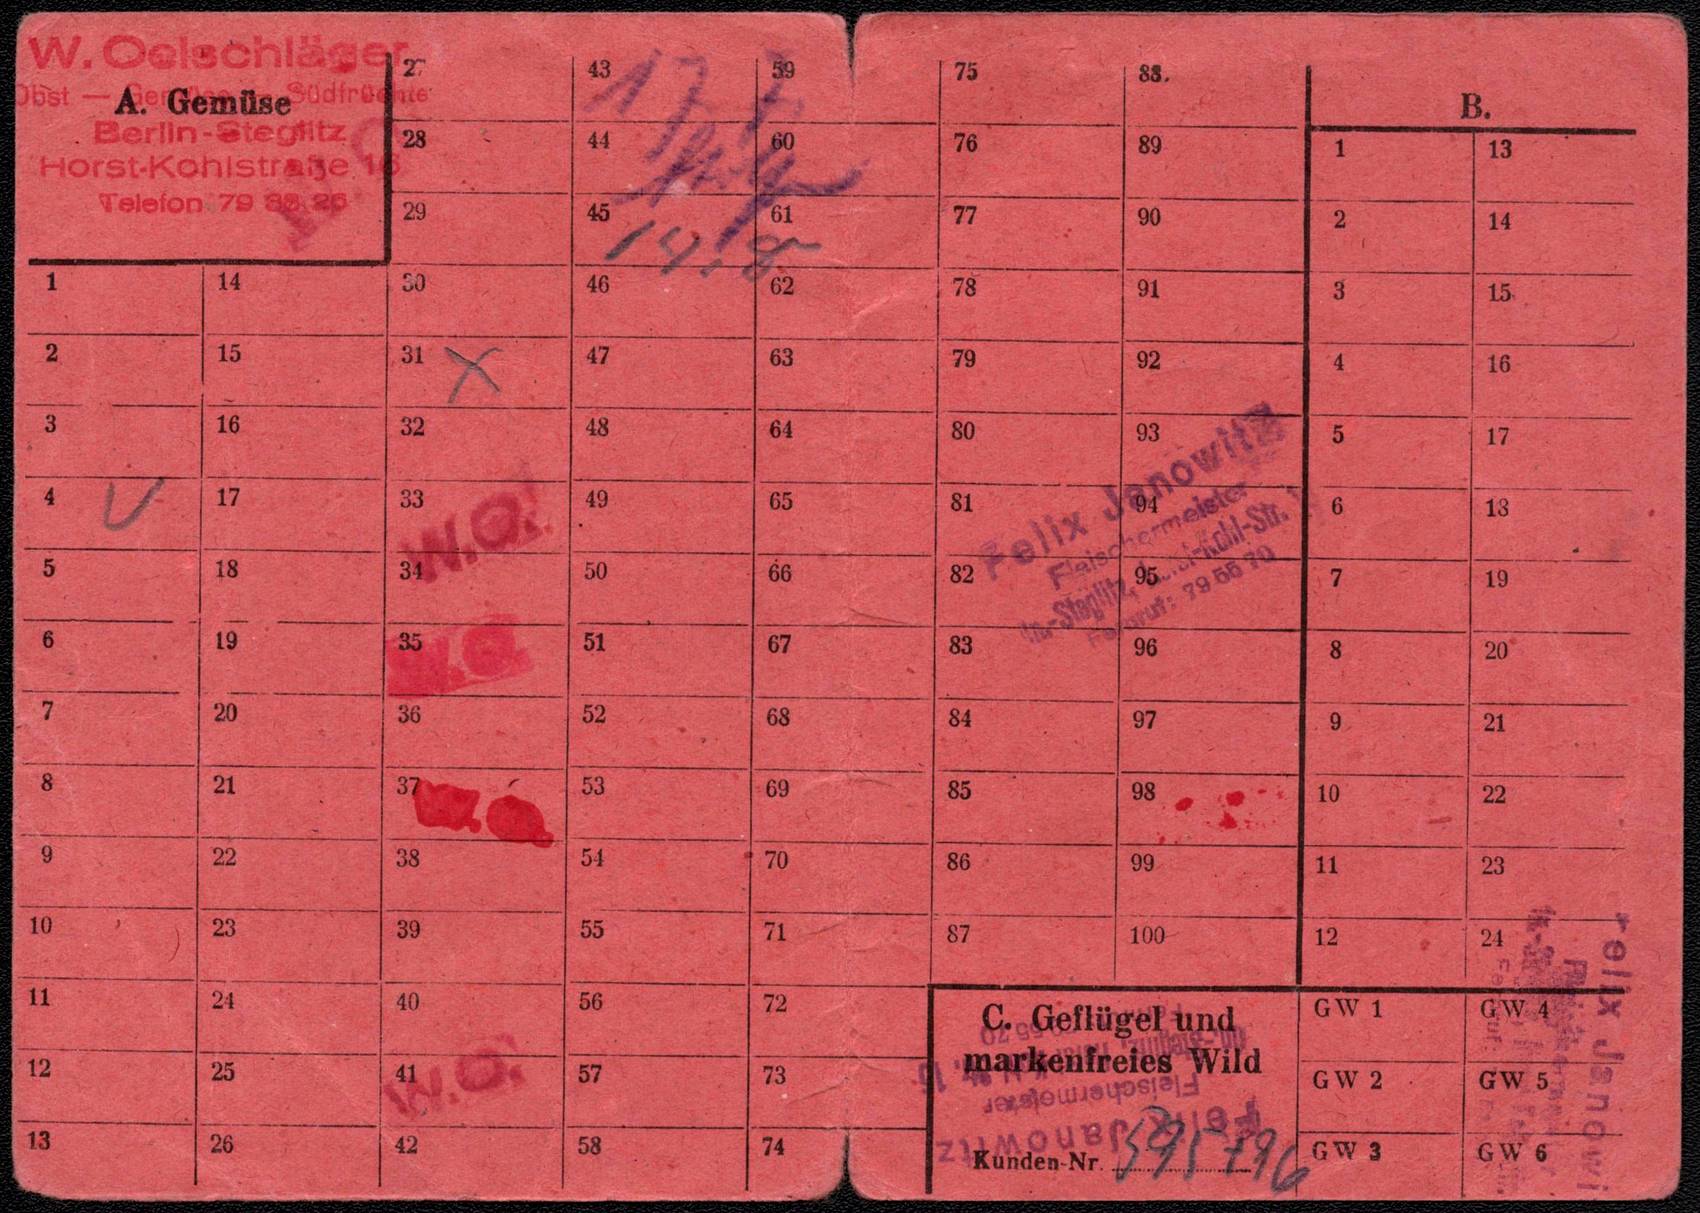 W. Oelschläger
Obst — Gemüse — Südfrüchte
A. Gemüse
Berlin-Steglitz
Horst-Kohlstraße 16
Telefon 79 38 26
1
2
3
4
5
6
7
8
9
10
11
12
13
14
15
16
17
18
19
20
21
22
23
24
25
26
27
28
29
30
31 X
32
33
W.O.
34
35
W.O.
36
37
38
39
40
41
W.O.
42
43
44
45
46
47
48
49
50
51
52
53
54
55
56
57
58
59
60
61
62
63
64
65
66
67
68
69
70
71
72
73
74
75
76
77
78
79
80
81
82
83
84
85
86
87
88.
89
90
91
92
93
94
95
96
97
98
99
100
Felix Janowitz
Fleischermeister
ln-Steglitz, Horst-Kohl-Str. 1
Fernruf: 79 55 70
B.
1
2
3
4
5
6
7
8
9
10
11
12
13
14
15
16
17
18
19
20
21
22
23
24
C. Geflügel und
markenfreies Wild
Felix Janowitz
Fleischermeister
Kunden-Nr. 595796
GW 1
GW 2
GW 3
GW 4
GW 5
GW 6
Felix Janowi